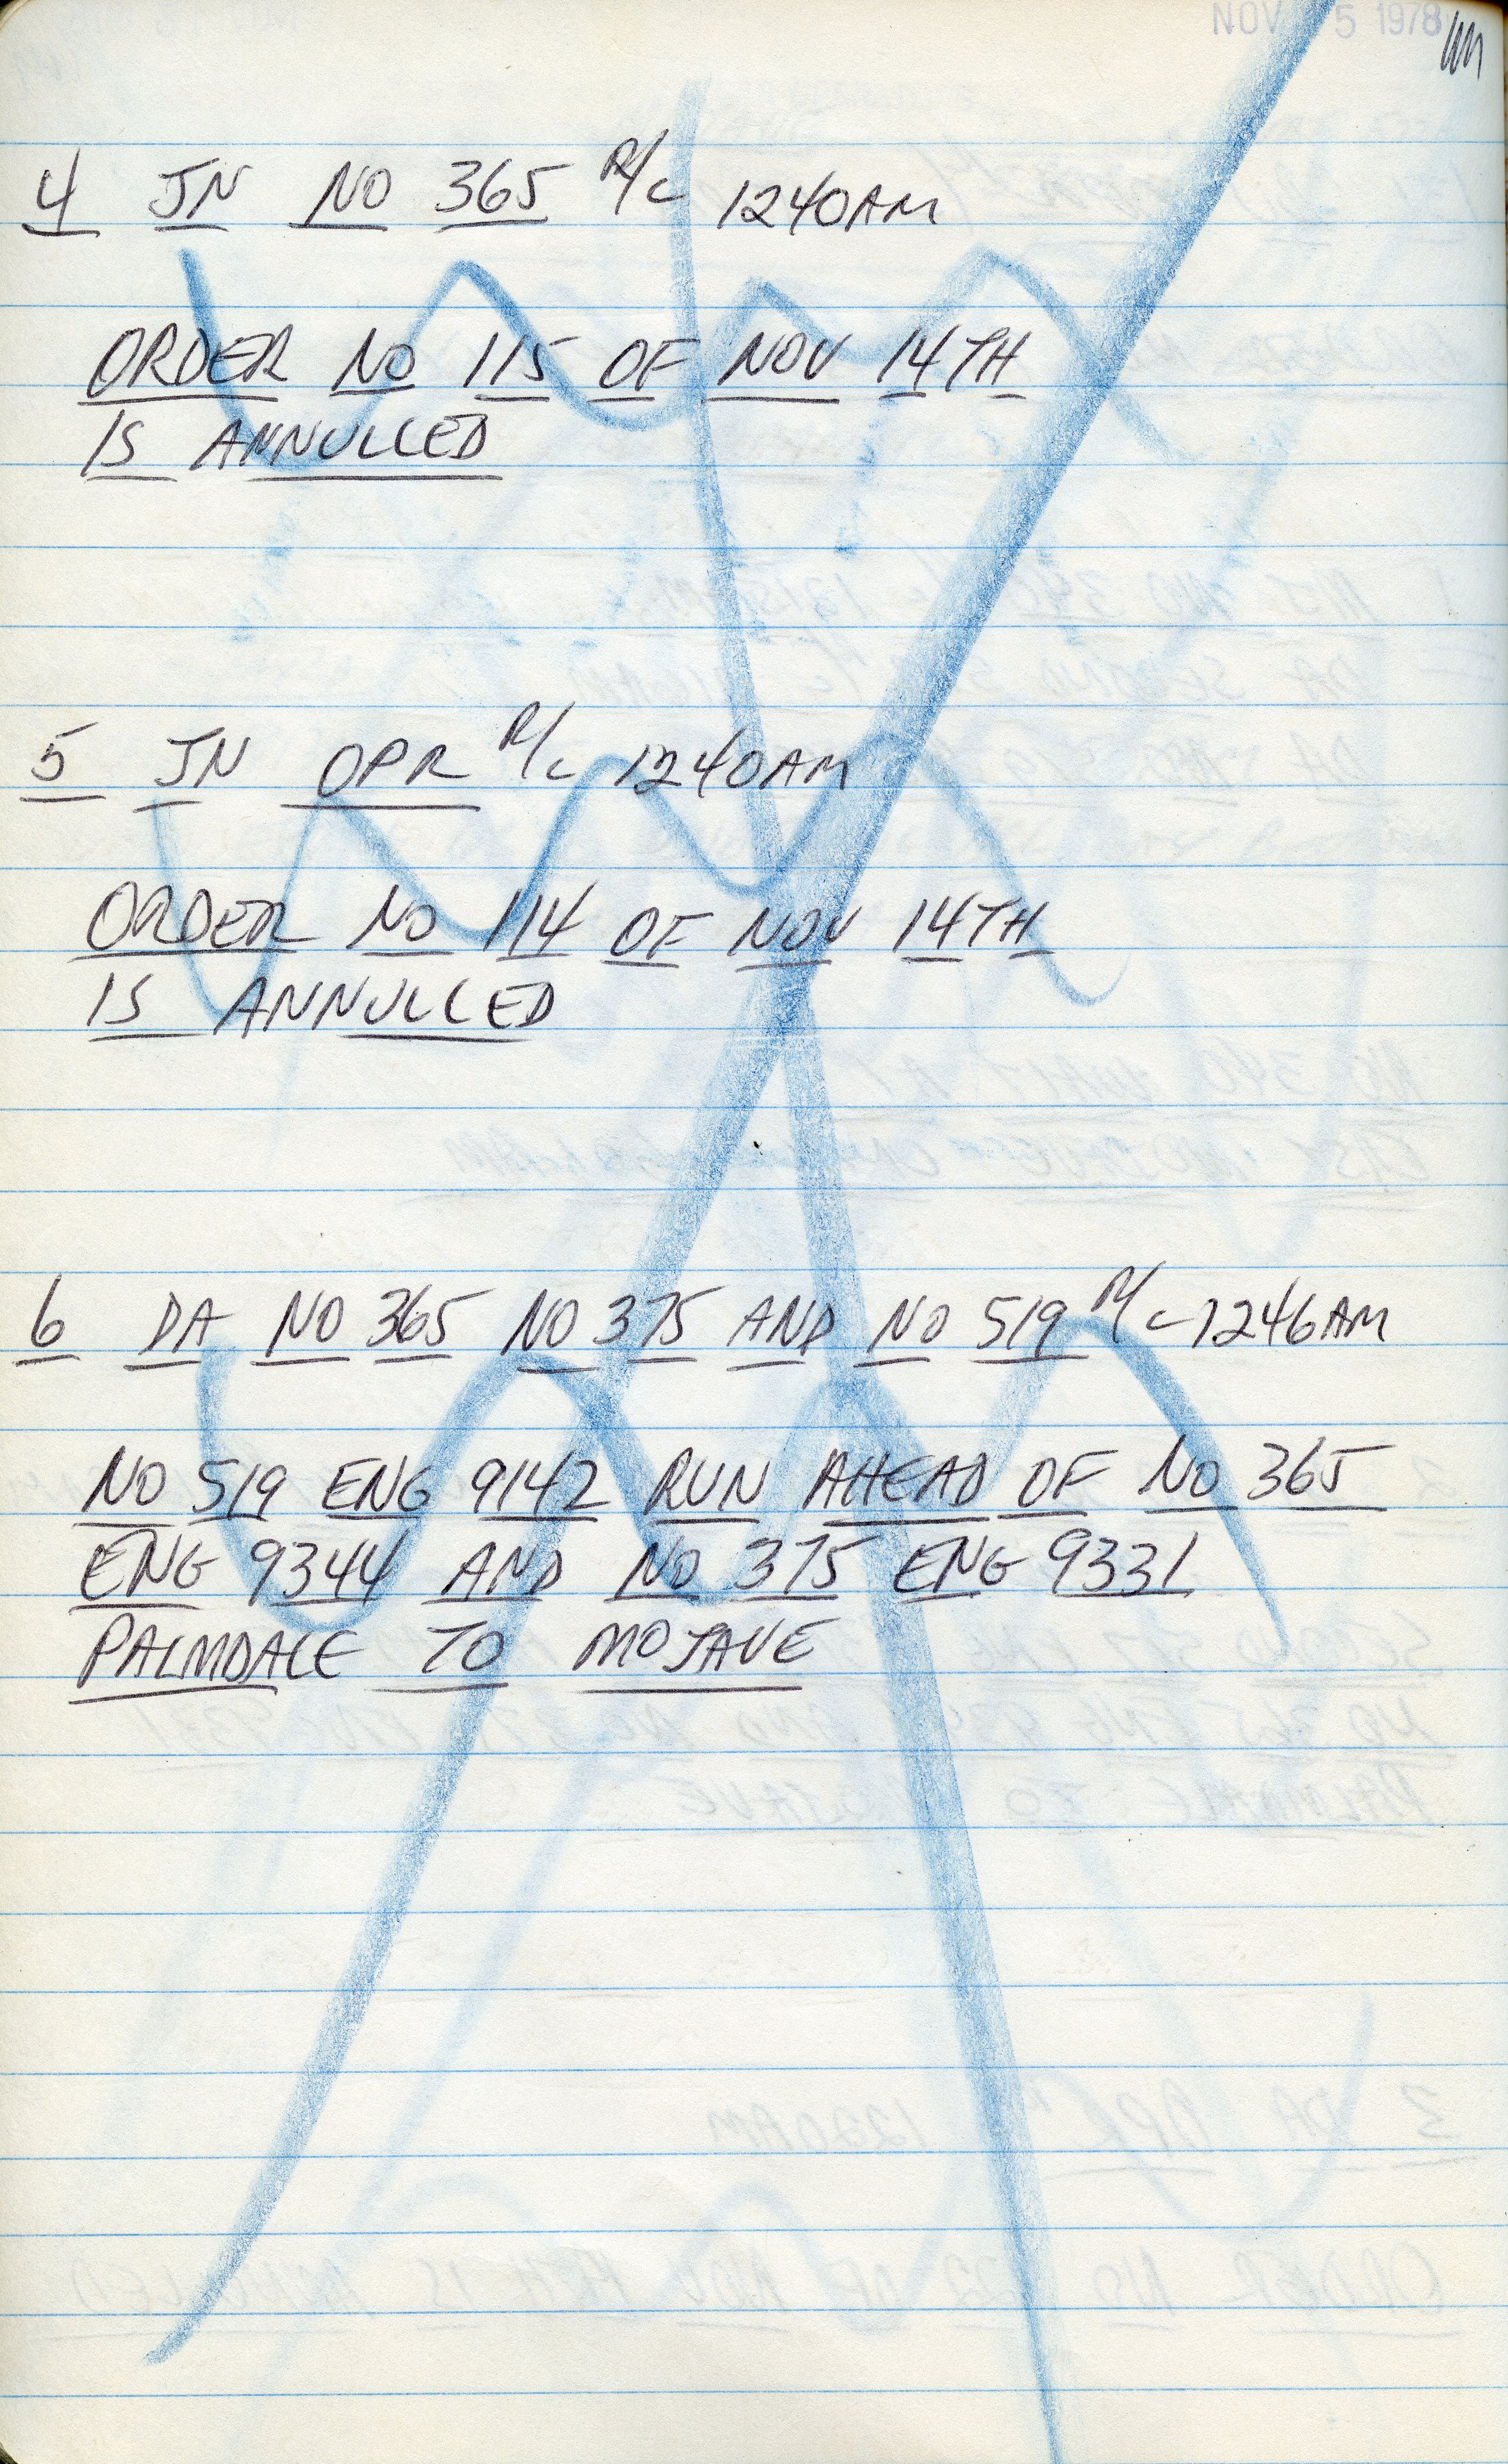 NOV 15 1978
4 JN NO 365 R/C 1240AM
ORDER NO 115 OF NOV 14TH
IS ANNULLED
5 JN OPR R/C 1240AM
ORDER NO 114 OF NOV 14TH
IS ANNULLED
6 DA NO 365 NO 375 AND NO 519 R/C 1246AM
NO 519 ENG 9142 RUN AHEAD OF NO 365
ENG 9344 AND NO 375 ENG 9331
PALMDALE TO MOJAVE